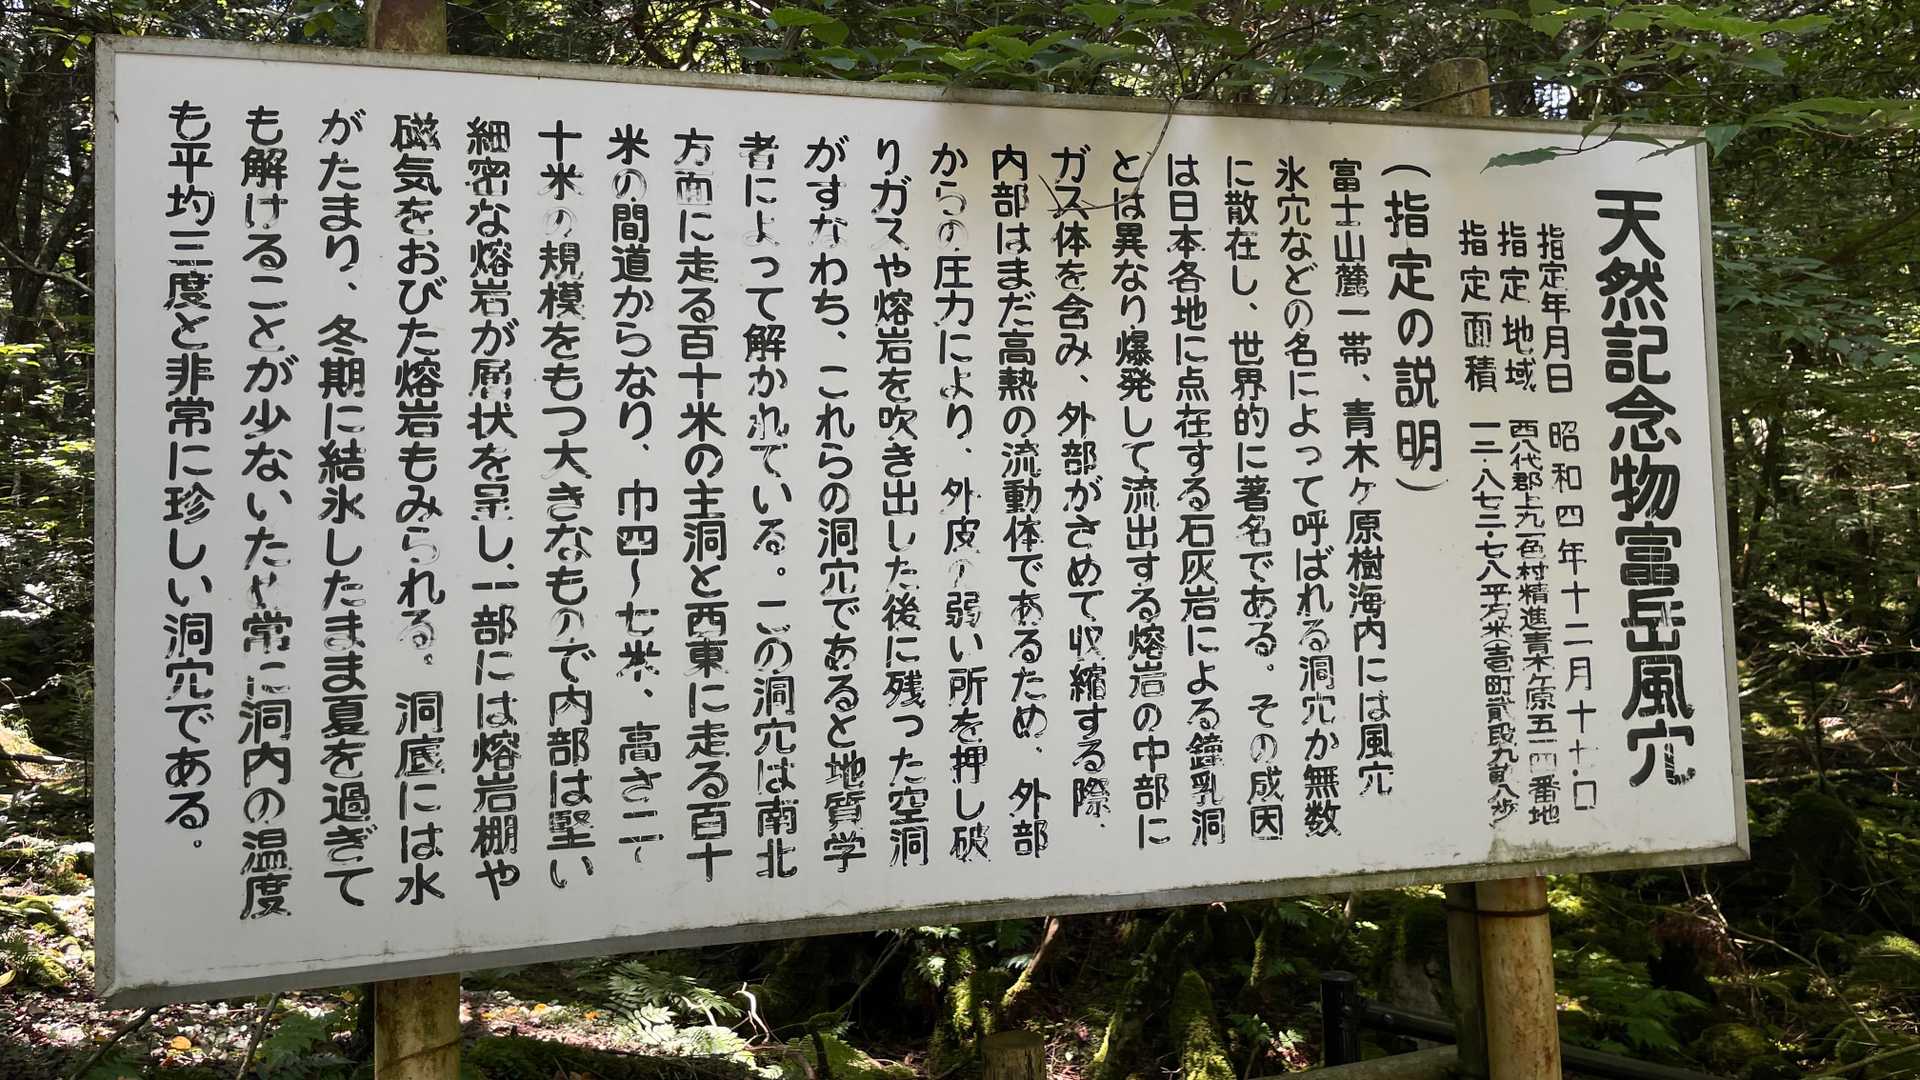 天然記念物富岳風穴
指定年月日 昭和四年十二月十七日
指定地域 西八代郡上九一色村精進青木ケ原五一四番地
指定面積 一三・八七二・七八平方米(壱町貮段九畝八歩)
(指定の説明)
富士山麓一帯、青木ケ原樹海内には風穴
氷穴などの名によって呼ばれる洞穴が無数
に散在し、世界的に著名である。その成因
は日本各地に点在する石灰岩による鐘乳洞
とは異なり爆発して流出する熔岩の中部に
ガス体を含み、外部がさめて収縮する際、
内部はまだ高熱の流動体であるため、外部
からの圧力により、外皮の弱い所を押し破
りガスや熔岩を吹き出した後に残った空洞
がすなわち、これらの洞穴であると地質学
者によって解かれている。この洞穴は南北
方面に走る百十米の主洞と西東に走る百十
米の間道からなり、巾四〜七米、高さ二〜
十米の規模をもつ大きなもので内部は堅い
細密な熔岩が層状を呈し、一部には熔岩棚や
磁気をおびた熔岩もみられる。洞底には水
がたまり、冬期に結氷したまま夏を過ぎて
も解けることが少ないため常に洞内の温度
も平均三度と非常に珍しい洞穴である。